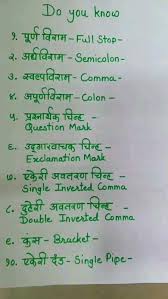 Do you know
१. पूर्ण विराम - Full Stop -
२. अर्धविराम - Semicolon -
३. स्वल्पविराम - Comma -
४. अपूर्णविराम - Colon -
५. प्रश्नार्थक चिन्ह -
Question Mark
६. उद्गारवाचक चिन्ह -
Exclamation Mark
७. ऐकेरी अवतरण चिन्ह -
Single Inverted Comma
८. दुहेरी अवतरण चिन्ह -
Double Inverted Comma
९. कंस - Bracket -
१०. ऐकेरी दंड - Single Pipe -